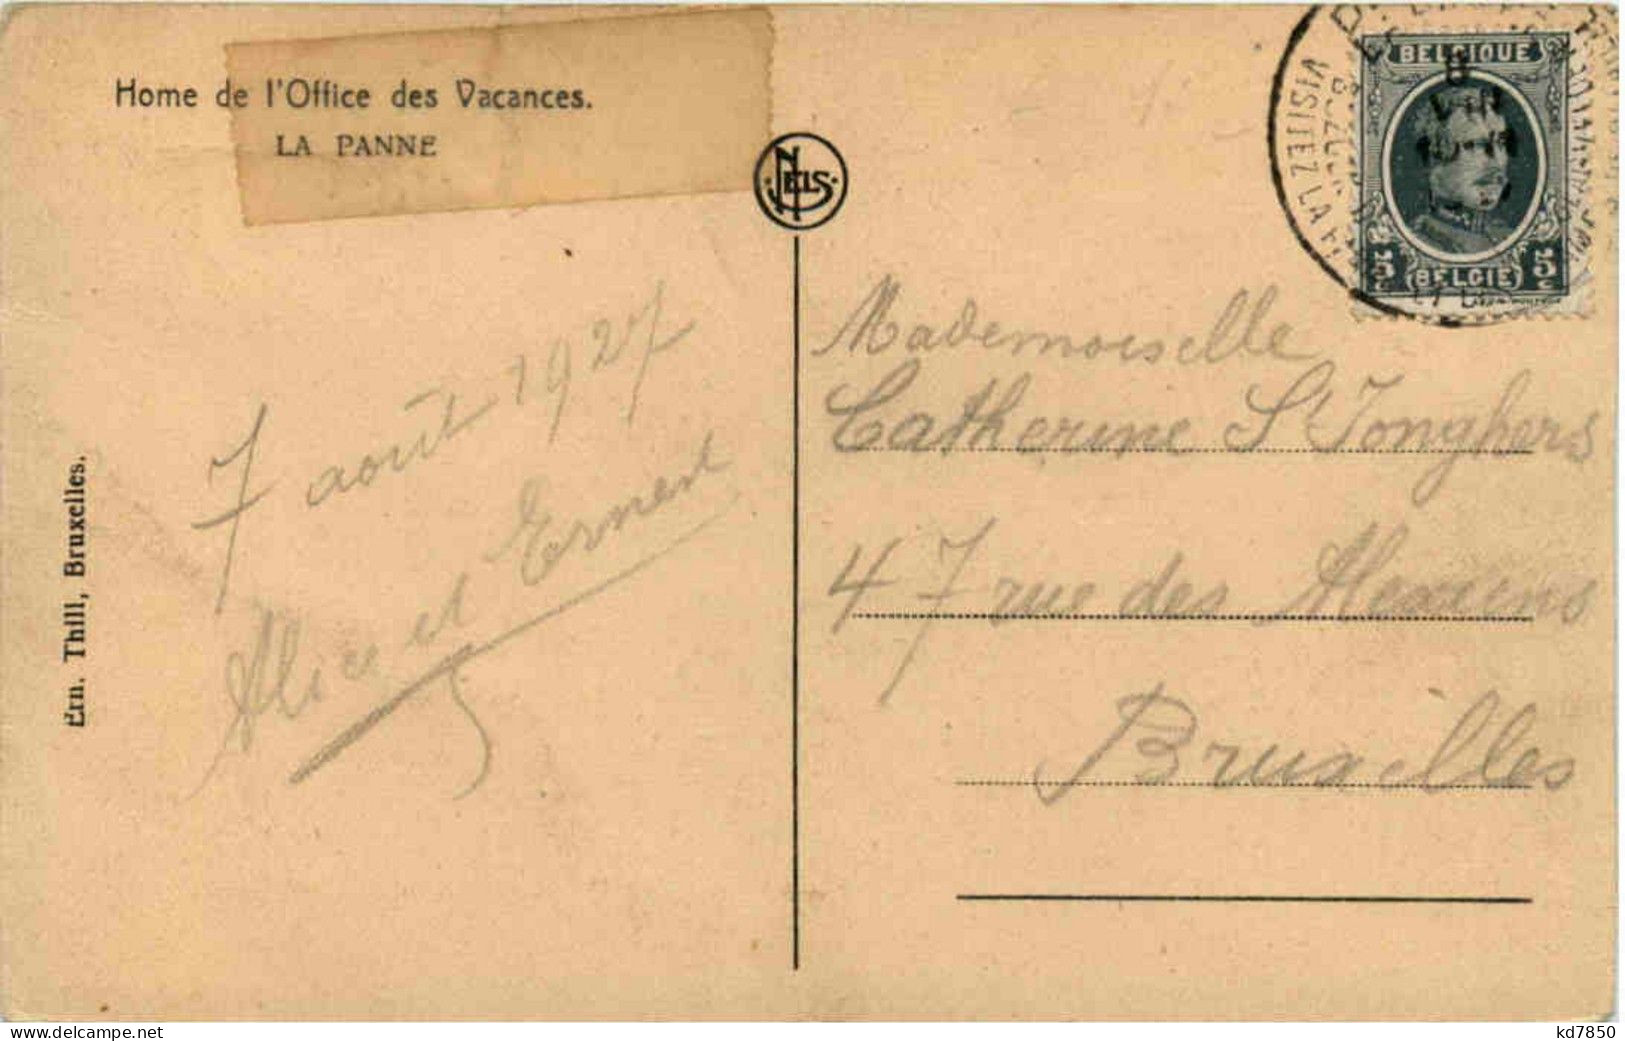 Home de l'Office des Vacances.
LA PANNE
NELS
BELGIQUE
5 c BELGIË 5 c
VISITEZ LA
7 août 1927
Alice et Ernest
Mademoiselle
Catherine S'Jonghers
47 rue des Alexiens
Bruxelles
Ern. Thill, Bruxelles.
www.delcampe.net
kd7850